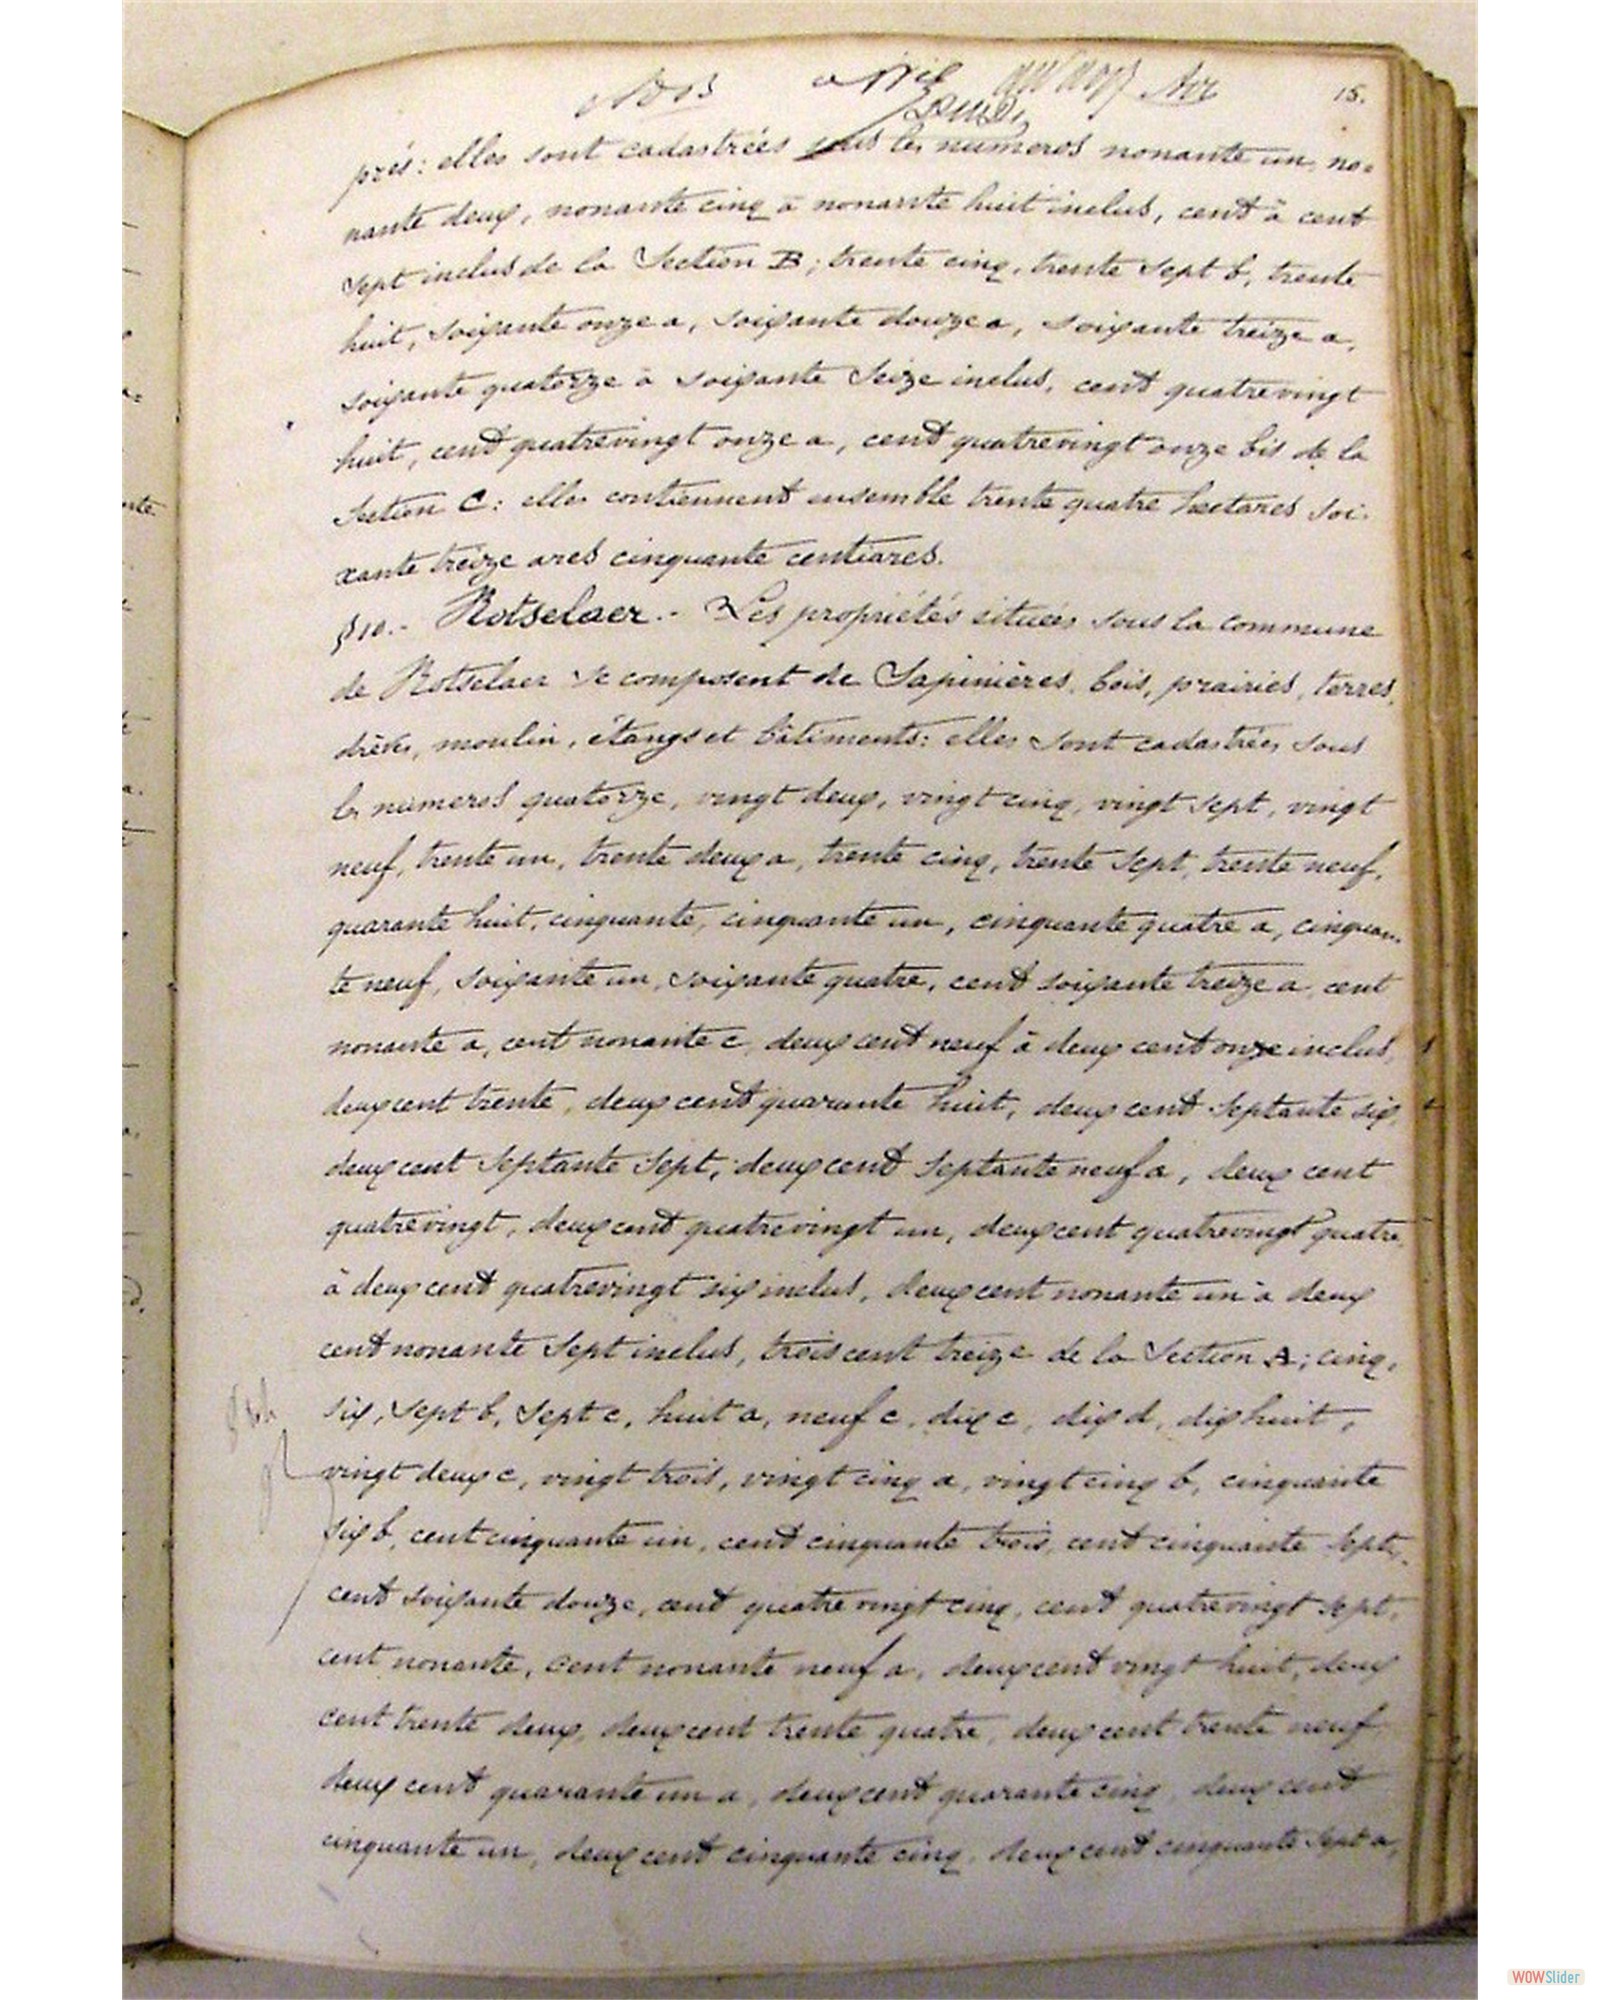 15.
prés: elles sont cadastrées sous les numeros nonante un, no=
nante deux, nonante cinq à nonante huit inclus, cent à cent
sept inclus de la Section B; trente cinq, trente sept b, trente
huit, soixante onze a, soixante douze a, soixante treize a,
soixante quatorze à soixante seize inclus, cent quatrevingt
huit, cent quatrevingt onze a, cent quatrevingt onze bis de la
Section C: elles contiennent ensemble trente quatre hectares soi-
xante treize ares cinquante centiares.
§10.- Rotselaer.- Les propriétés situées sous la commune
de Rotselaer se composent de Sapinières, bois, prairies, terres,
drèves, moulin, étangs et bâtiments: elles sont cadastrées sous
les numeros quatorze, vingt deux, vingt cinq, vingt sept, vingt
neuf, trente un, trente deux a, trente cinq, trente sept, trente neuf,
quarante huit, cinquante, cinquante un, cinquante quatre a, cinquan-
te neuf, soixante un, soixante quatre, cent soixante treize a, cent
nonante a, cent nonante c, deux cent neuf à deux cent onze inclus,
deux cent trente, deux cent quarante huit, deux cent septante six,
deux cent septante sept, deux cent septante neuf a, deux cent
quatrevingt, deux cent quatrevingt un, deux cent quatrevingt quatre
à deux cent quatrevingt six inclus, deux cent nonante un à deux
cent nonante sept inclus, trois cent treize de la Section A; cinq,
six, sept b, sept c, huit a, neuf c, dix c, dix d, dix huit,
vingt deux c, vingt trois, vingt cinq a, vingt cinq b, cinquante
six b, cent cinquante un, cent cinquante trois, cent cinquante sept,
cent soixante douze, cent quatre vingt cinq, cent quatrevingt sept,
cent nonante, cent nonante neuf a, deux cent vingt huit, deux
cent trente deux, deux cent trente quatre, deux cent trente neuf
deux cent quarante un a, deux cent quarante cinq, deux cent
cinquante un, deux cent cinquante cinq, deux cent cinquante sept a,
WOWSlider